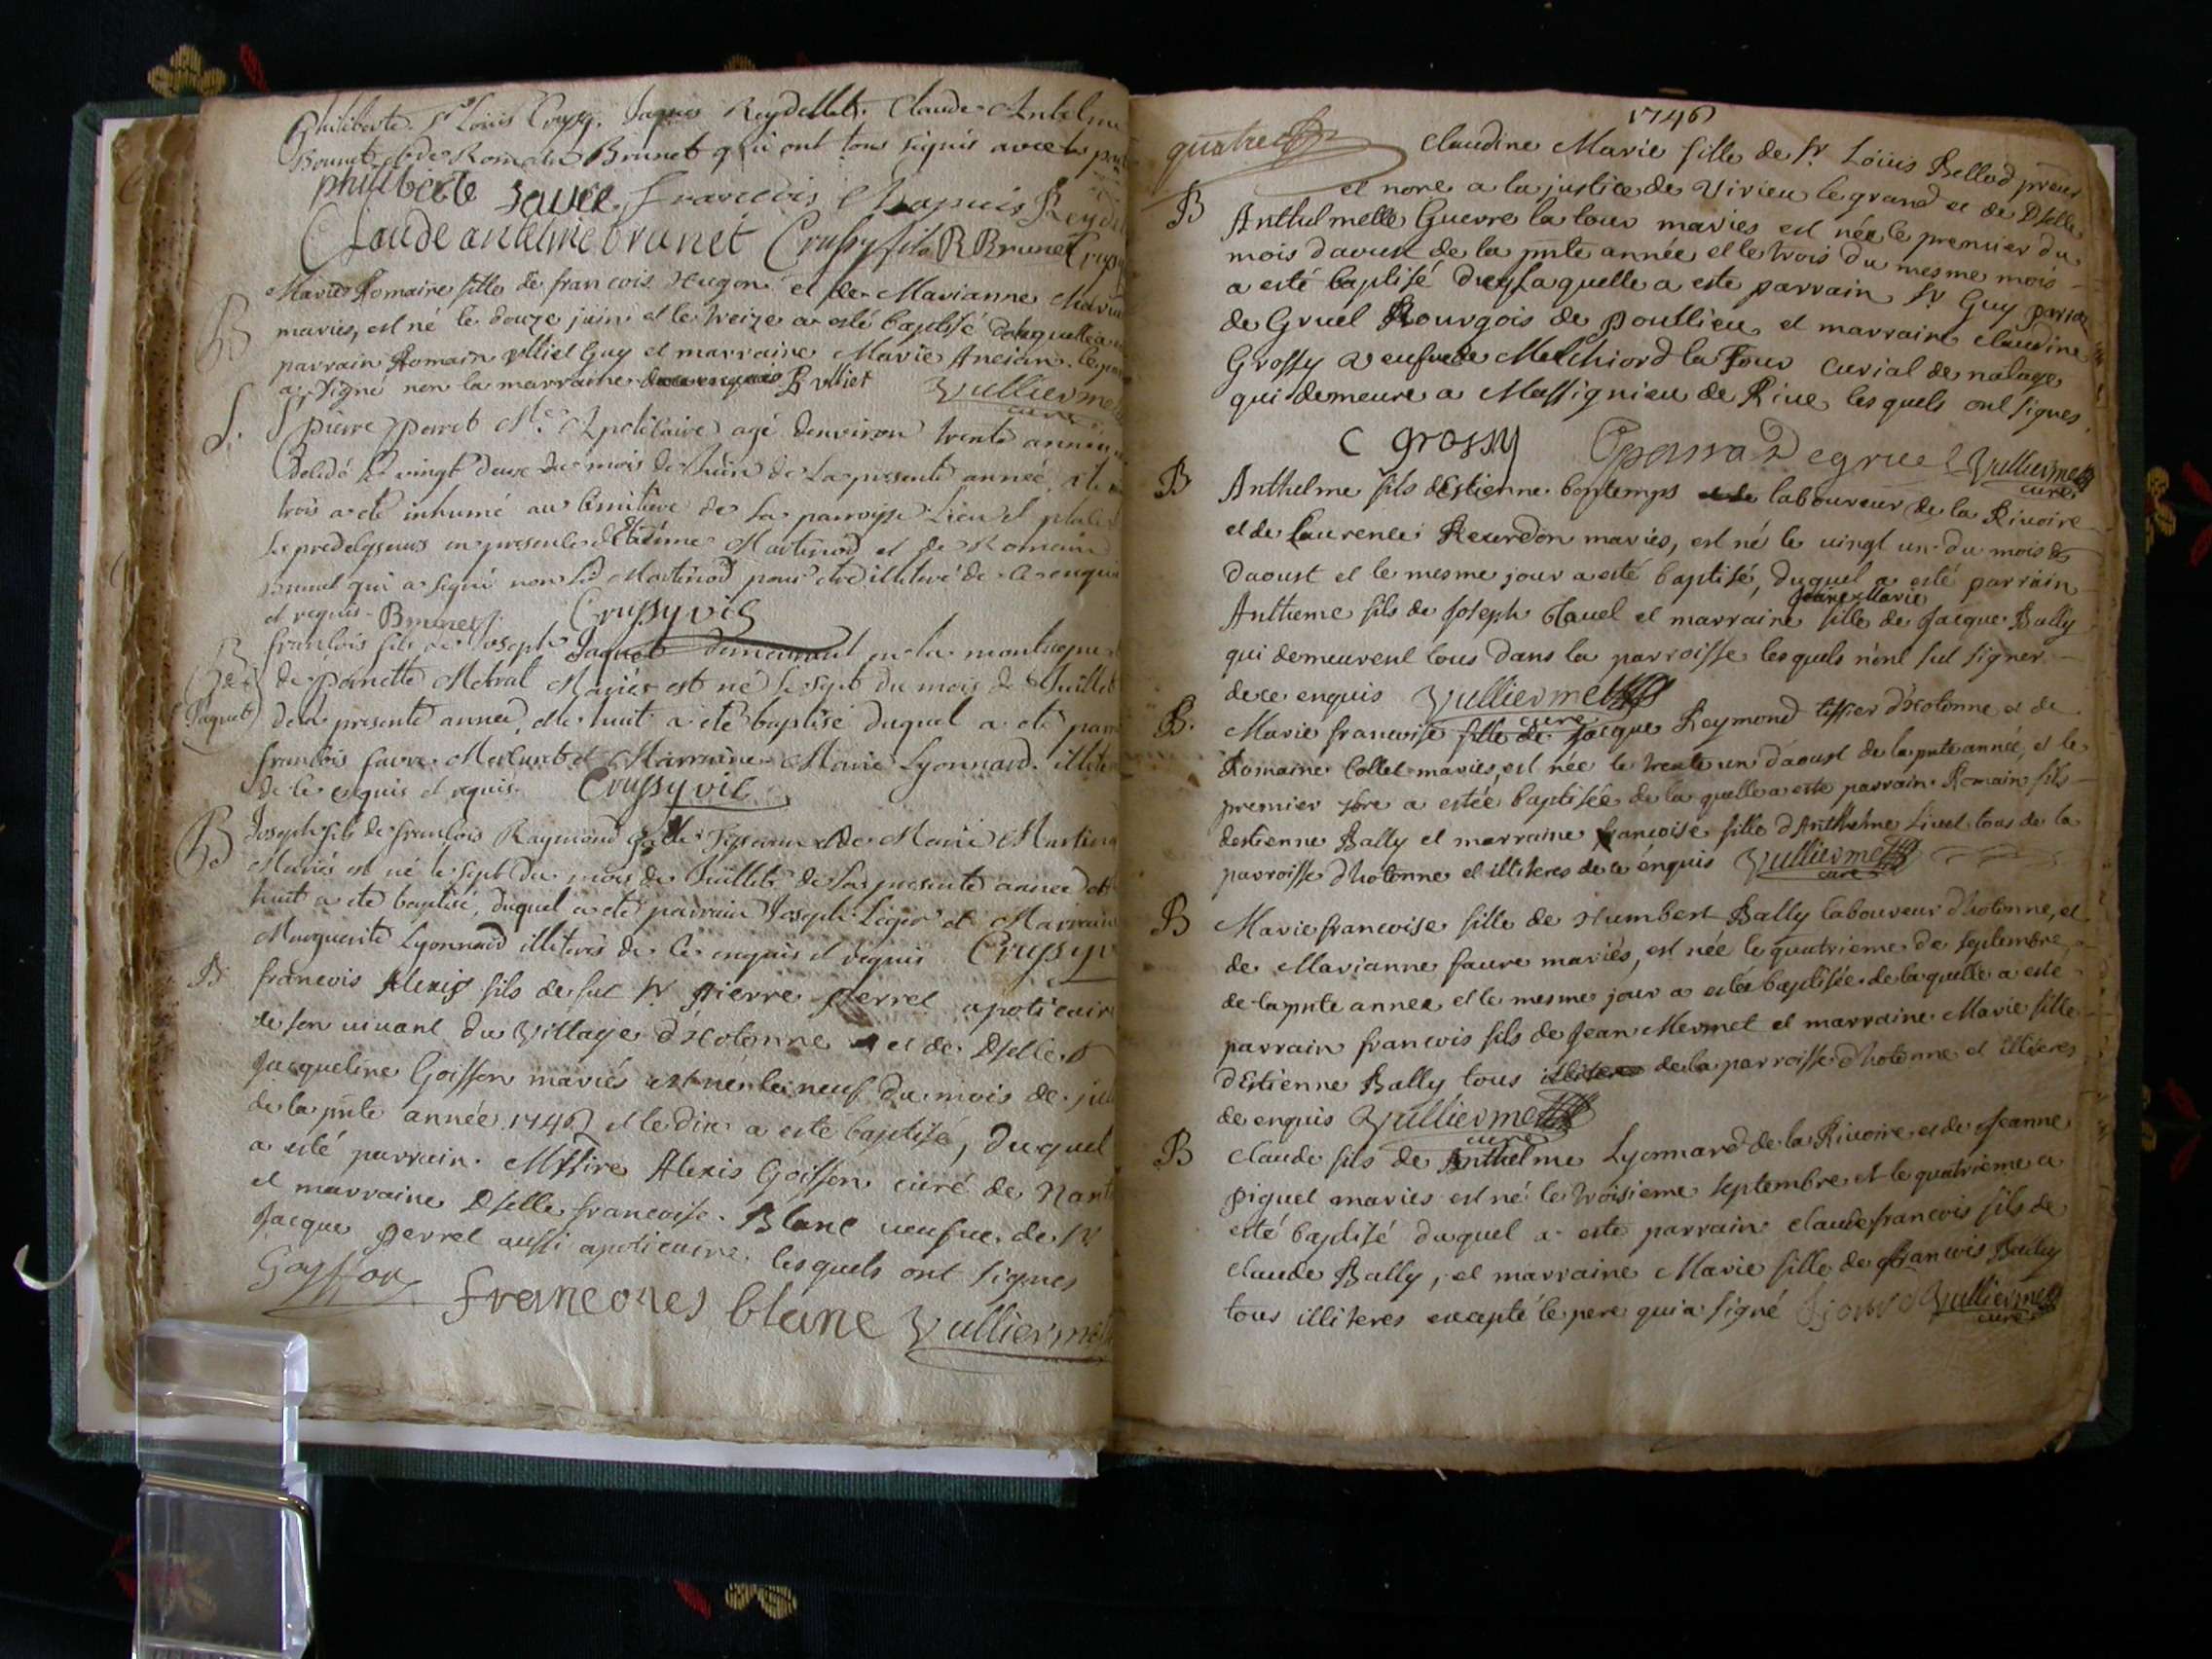 Philiberte. Sr Loüis Crussy. Jaques Reydellet. Claude Antelme
Brunet et de Romain Brunet qui ont tous signés avec le
philiberte François Chapuis Reydel
Claude antelme brunet Crussy fils R Brunet Crussy
B
Marie Romaine fille de francois Hugon et de Marianne
mariés, est né le douze juin et le treize a esté baptisé de laquelle a
parrain Romain Guy et marraine Marie Ancian. le
a signé non la marraine de ce enquis Vulliermet
curé
S.
pierre perret Me Apoticaire agé denviron trente années
décédé le vingt deux du mois de Juin de la presente année et le
trois a eté inhumé au Cimitiere de la parroisse Lieu et place
ses predecesseurs en presence d'Etienne Martinod et de Romain
Brunet qui a signé non led Martinod pour etre illiteré de ce enquis
et requis Brunet Crussy vic
B
Jaquet
francois fils de Joseph Jaquet demeurant en la montagne
de panette Metral Mariés est né le sept du mois de Juillet
de la presente année, et le huit a eté baptisé duquel a eté
francois favre et Marraine Marie Lyonnard. illiteres
de ce enquis et requis. Crussy vic
B
Joseph fils de francois Raymond et de Marie
Mariés est né le sept du mois de Juillet de la presente année et
huit a eté baptisé, duquel a eté parrain Joseph Liger et Marraine
Marguerite Lyonnard illiteres de ce enquis et requis Crussy
B
francois Alexis fils de fut Sr pierre perret apoticaire
de son vivant du village d'Hotonne et de Dselle
Jacqueline Goisson mariés est né le neuf du mois de
de la pnte année 1746 et le dix a este baptisé, duquel
a esté parrain. Messire Alexis Goisson curé de
et marraine Dselle francoise Blanc veufve de Sr
Jacque perret aussi apoticaire lesquels ont signes
Goyffon francoies blanc Vulliermet
1746
quatre
Claudine Marie fille de Sr Loüis Bellod
B
et nore a la justice de Virieu le grand et de Dselle
Anthelmelle Guerre la tour maries est née le premier du
mois daoust de la pnte année et le trois du mesme mois
a esté baptisé de laquelle a este parrain Sr Guy
de Gruel Bourgois de poullieu et marraine claudine
Grossy veufve de Melchiord la Tour curial de nalage
qui demeure a Massignieu de Rive lesquels ont signes
C grossy Degruel Vulliermet
curé
B
Anthelme fils dEstienne bontemps laboureur de la Rivoire
et de Laurence mariés, est né le vingt un du mois
daoust et le mesme jour a esté baptisé, duquel a esté parrain
Jeane Marie
Antheme fils de Joseph Clavel et marraine fille de Jacque Bally
qui demeurent tous dans la parroisse lesquels n'ont sut signer
de ce enquis Vulliermet
curé
B.
Marie francoise fille de Jacque Reymond tissier d'Hotonne et de
Romaine Collet mariés, est née le trente un daoust de la pnte année, et le
premier 7bre a estée baptisée de la quelle a este parrain Romain fils
destienne Bally et marraine francoise fille d'Anthelme Livet tous de la
parroisse d'hotonne et illiteres de ce enquis Vulliermet
curé
B
Marie francoise fille de Humbert Bally laboureur d'hotonne, et
de Marianne favre mariés, est née le quatrieme de septembre
de la pnte année et le mesme jour a estée baptisée de laquelle a este
parrain francois fils de Jean Mermet et marraine Marie fille
d'Estienne Bally tous de la parroisse d'hotonne et illiteres
de enquis Vulliermet
curé
B
Claude fils de Anthelme Lyonnard de la Rivoire et de Jeanne
piguet mariés est né le troisieme septembre et le quatrieme a
esté baptisé duquel a este parrain claude francois fils de
claude Bally, et marraine Marie fille de francois Bailly
tous illiteres excepté le pere qui a signé Vulliermet
curé